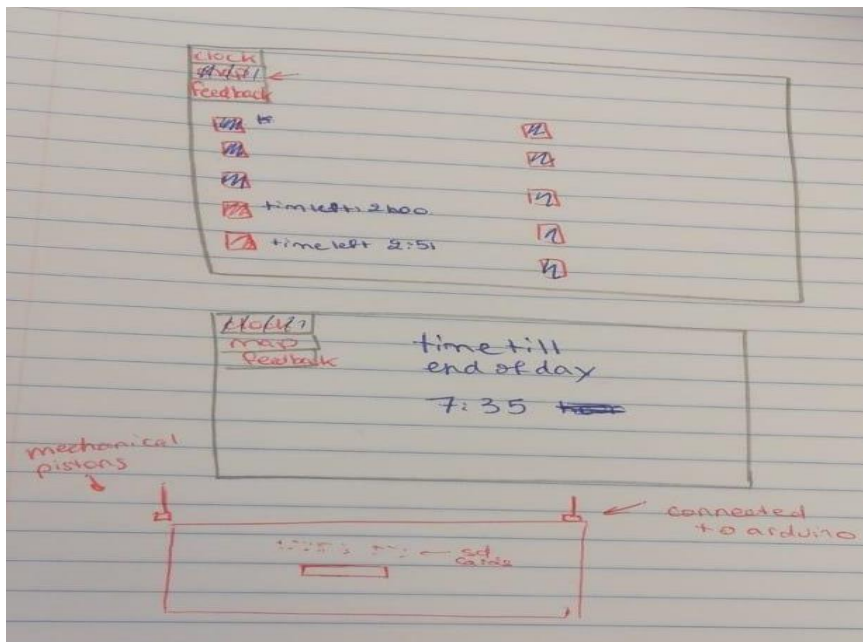 clock
feedback
time left: 2h00.
time left 2:51
map
feedback
time till
end of day
7:35
mechanical
pistons
connected
to arduino
sd